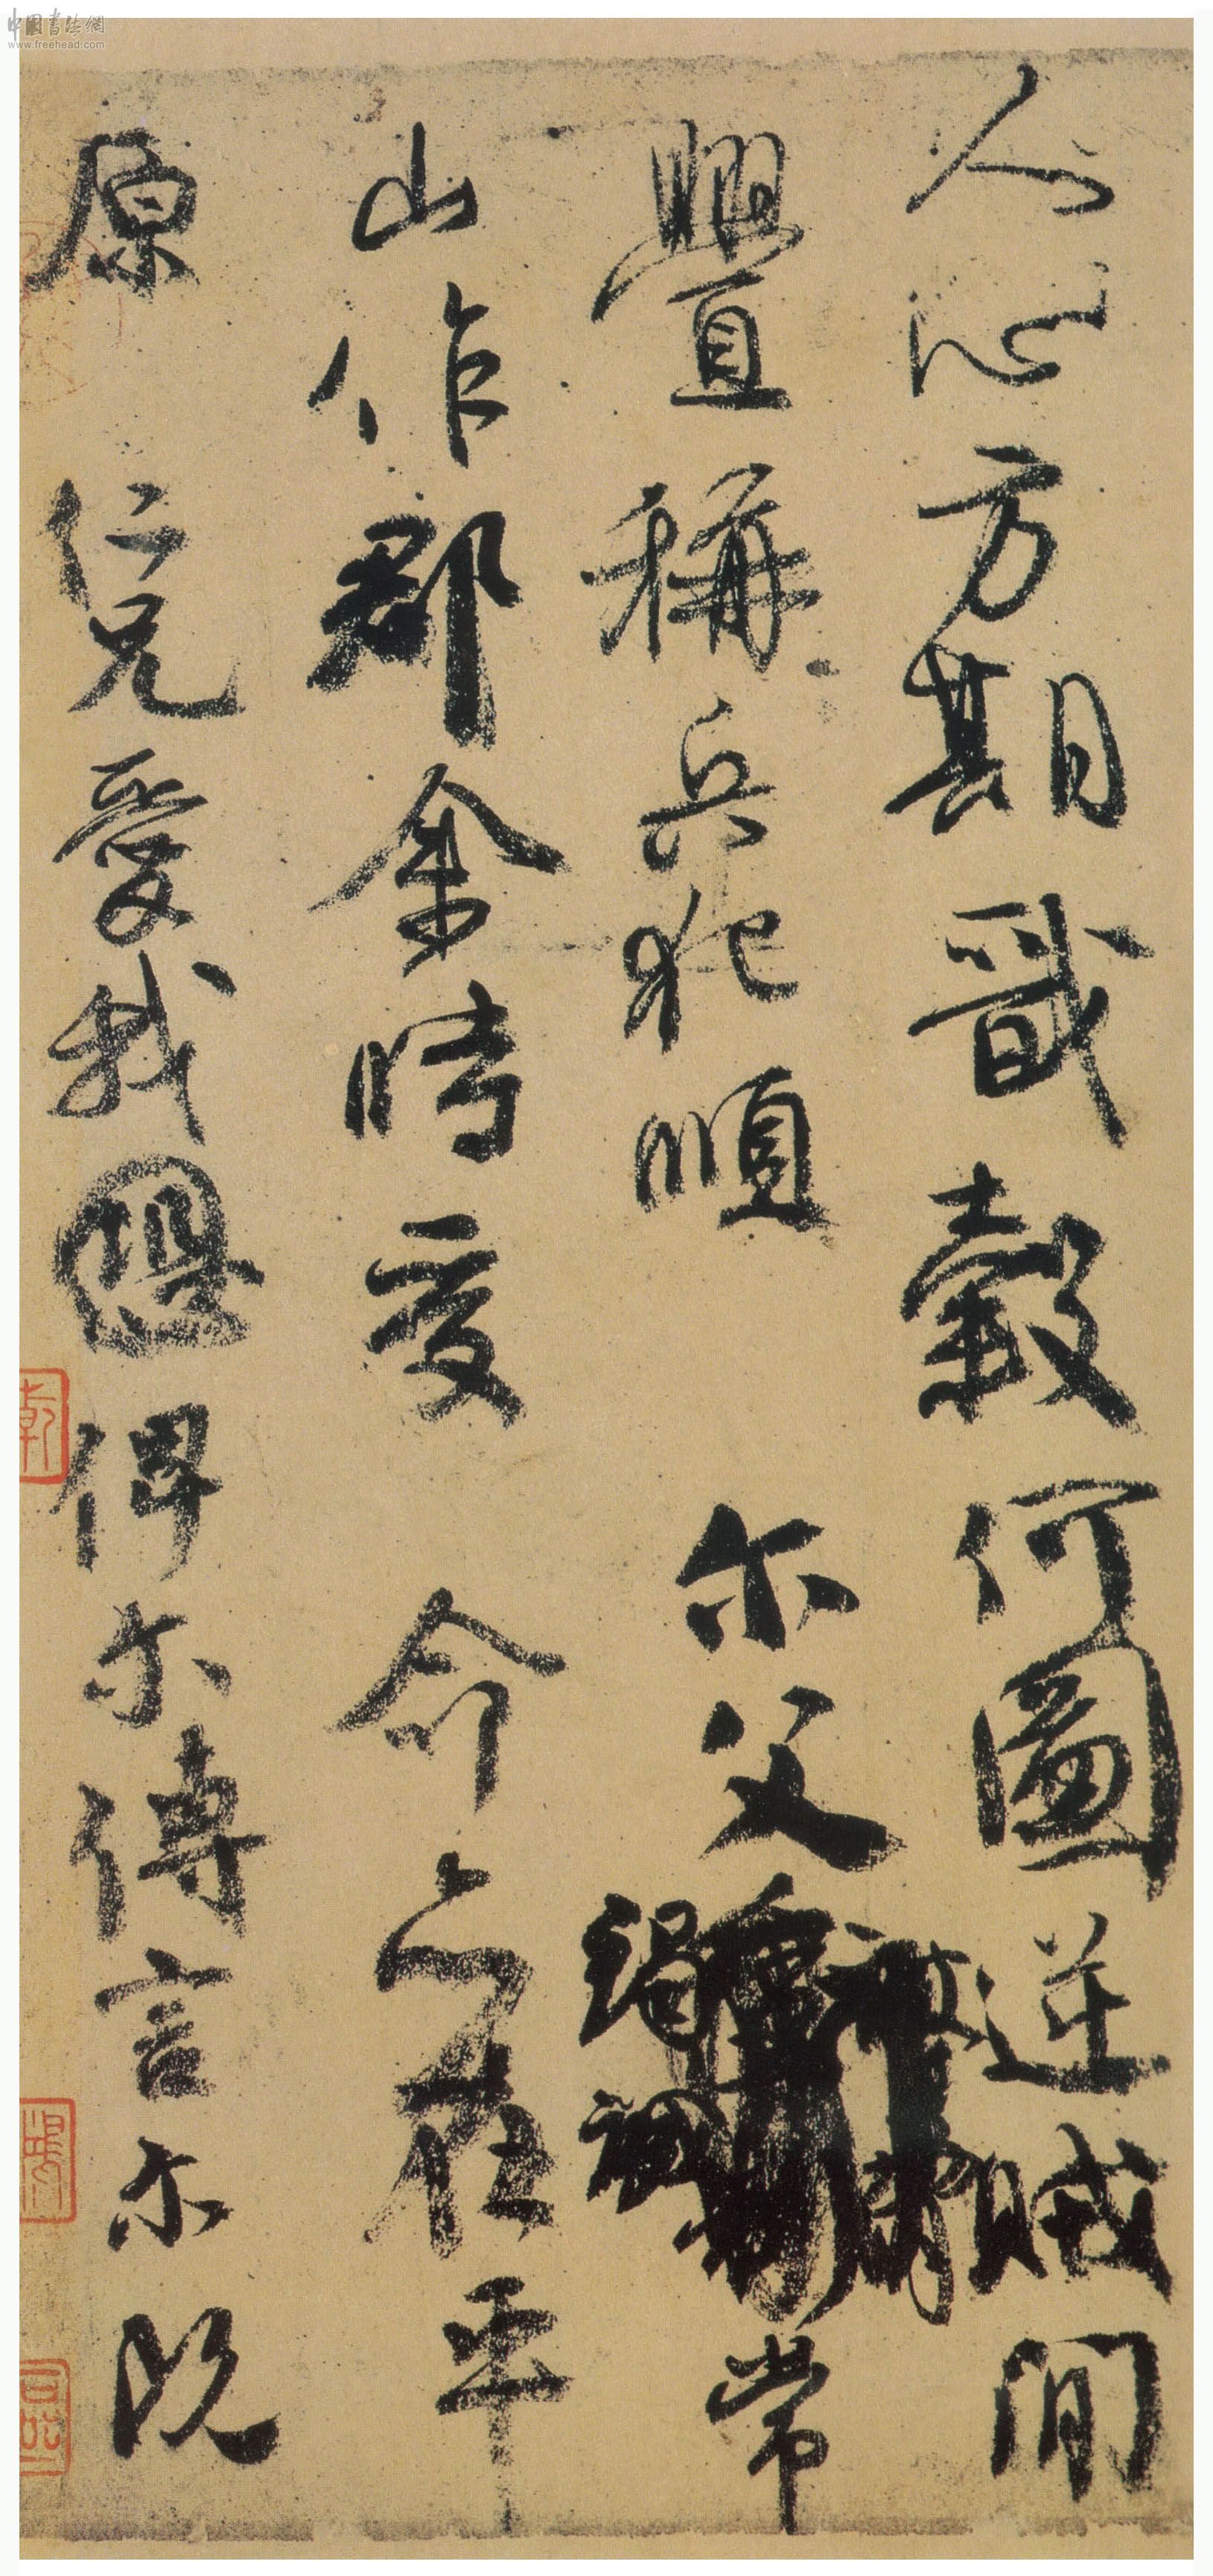 中國書法網
www.freehead.com
人心方期戩穀何圖逆賊閒
釁稱兵犯順尔父竭誠常
山作郡余時受命亦在平
原仁兄愛我俾尔傳言尔既